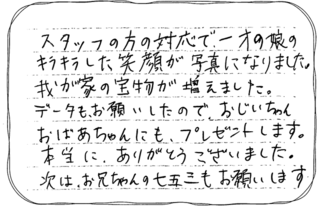 スタッフの方の対応で一才の娘の
キラキラした笑顔が写真になりました。
我が家の宝物が増えました。
データもお願いしたので、おじいちゃん
おばあちゃんにも、プレゼントします。
本当に、ありがとうございました。
次は、お兄ちゃんの七五三もお願いします